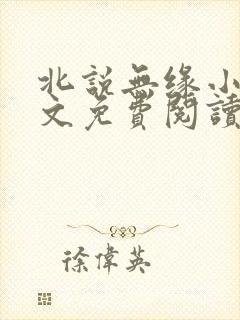 北說無缘小
文免費閱讀
徐偉英